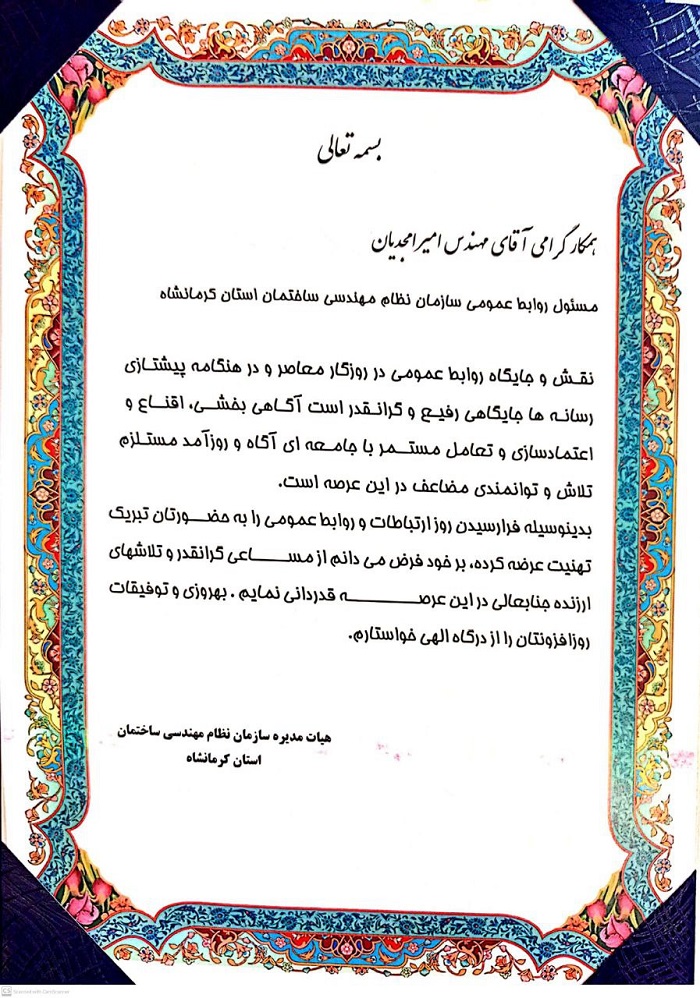 بسمه تعالی
همکار گرامی آقای مهندس امیر امجدیان
مسئول روابط عمومی سازمان نظام مهندسی ساختمان استان کرمانشاه
نقش و جایگاه روابط عمومی در روزگار معاصر و در هنگامه پیشتازی
رسانه ها جایگاهی رفیع و گرانقدر است آگاهی بخشی، اقناع و
اعتمادسازی و تعامل مستمر با جامعه ای آگاه و روزآمد مستلزم
تلاش و توانمندی مضاعف در این عرصه است.
بدینوسیله فرارسیدن روز ارتباطات و روابط عمومی را به حضورتان تبریک
تهنیت عرضه کرده، بر خود فرض می دانم از مساعی گرانقدر و تلاشهای
ارزنده جنابعالی در این عرصه قدردانی نمایم . بهروزی و توفیقات
روزافزونتان را از درگاه الهی خواستارم.
هیات مدیره سازمان نظام مهندسی ساختمان
استان کرمانشاه
CS Scanned with CamScanner